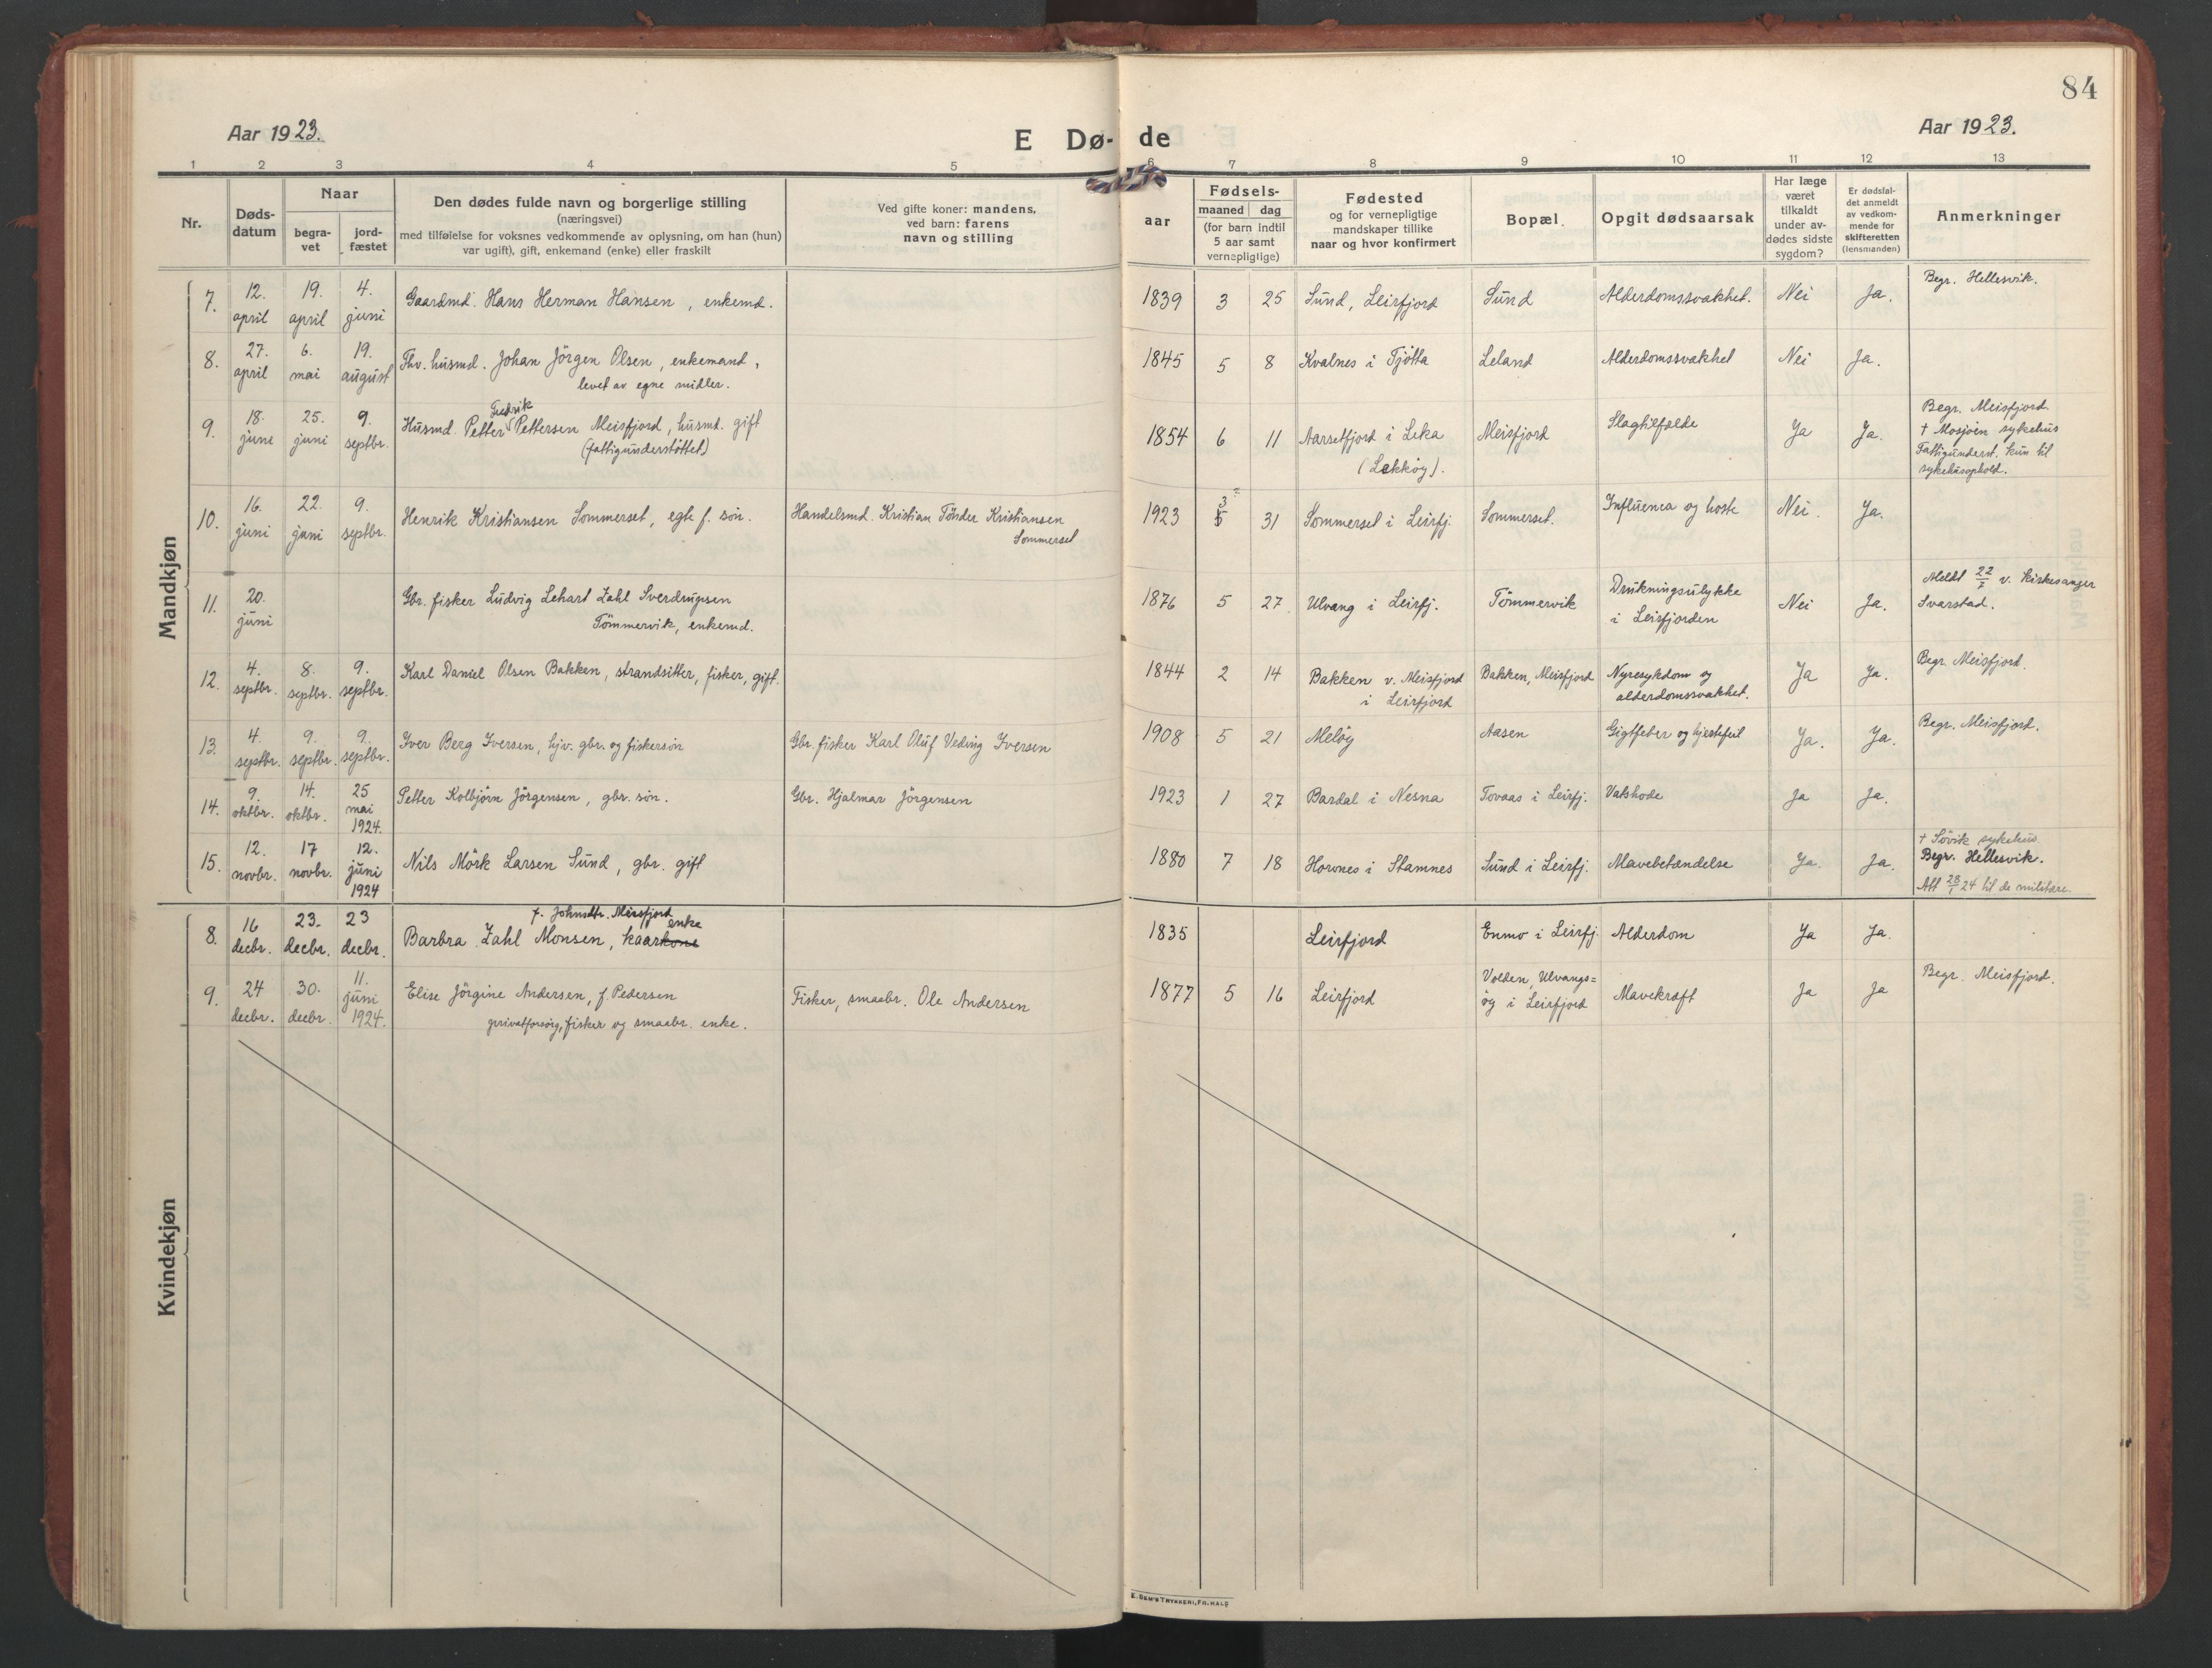 84
Aar 1923.
E Dø-de
Aar 1923.
1 2 3 4 5 6 7 8 9 10 11 12 13
Nr.
Døds-
datum
Naar
begra-
vet
jord-
fæstet
Den dødes fulde navn og borgerlige stilling
(næringsvei)
med tilføielse for voksnes vedkommende av oplysning, om han (hun)
var ugift), gift, enkemand (enke) eller fraskilt
Ved gifte koner: mandens,
ved barn: farens
navn og stilling
aar
Fødsels-
maaned dag
(for barn indtil
5 aar samt
vernepligtige)
Fødested
og for vernepligtige
mandskaper tillike
naar og hvor konfirmert
Bopæl.
Opgit dødsaarsak
Har læge
været
tilkaldt
under av-
dødes sidste
sygdom?
Er dødsfal-
det anmeldt
av vedkom-
mende for
skifteretten
(lensmanden)
Anmerkninger
Mandkjøn
7. 12. april 19. april 4. juni Gaardmd. Hans Herman Hansen, enkemd. 1839 3 25 Sund, Leirfjord Sund Alderdomssvakhet. Nei Ja. Begr. Hellesvik.
8. 27. april 6. mai 19. august Fhv. husmd. Johan Jörgen Olsen, enkemand,
levet av egne midler.
1845 5 8 Kvalnes i Tjötta Leland Alderdomssvakhet Nei Ja.
9. 18. june 25. juni 9. septbr. Fredrik
Husmd. Petter Pettersen Meisfjord, husmd. gift
(fattigunderstöttet)
1854 6 11 Aarsetfjord i Leka
(Lekköy).
Meisfjord Slagtilfælde Ja Ja.
Begr. Meisfjord.
† Mosjöen sykehus
Fattigunderst. kun til
sykehusophold.
10. 16. juni 22. juni 9. septbr. Henrik Kristiansen Sommerset, egte f. søn.
Handelsmd. Kristian Tönder Kristiansen
Sommerset
1923 3 5 31 Sommerset i Leirfj. Sommerset. Influensa og hoste Nei. Ja.
11. 20. juni Gbr. fisker Ludvig Lehart Zahl Sverdrupsen
Tömmervik, enkemd.
1876 5 27 Ulvang i Leirfj. Tömmervik Drukningsulykke
i Leirfjorden
Nei Ja. Meldt 22/7 v. kirkesanger
Svarstad.
12. 4. septbr. 8. septbr. 9. septbr. Karl Daniel Olsen Bakken, strandsitter, fisker, gift.
1844 2 14 Bakken v. Meisfjord
i Leirfjord
Bakken, Meisfjord Nyresykdom og
alderdomssvakhet.
Ja Ja. Begr. Meisfjord.
13. 4. septbr. 9. septbr. 9. septbr. Iver Berg Iversen, hjv. gbr. og fiskersøn Gbr. fisker Karl Oluf Veding Iversen
1908 5 21 Melöy Aasen Gigtfeber og hjertefeil Ja. Ja. Begr. Meisfjord.
14. 9. oktbr. 14. oktbr. 25 mai 1924. Petter Kolbjörn Jörgensen, gbr. søn. Gbr. Hjalmar Jörgensen
1923 1 27 Bardal i Nesna Tovaas i Leirfj. Vatshode Ja Ja.
15. 12. novbr. 17 novbr. 12. juni 1924 Nils Mörk Larsen Sund, gbr. gift
1880 7 18 Hornes i Stamnes Sund i Leirfj. Mavebetændelse Ja. Ja.
† Sövik sykehus
Begr. Hellesvik.
Att 28/1 24 til de militære.
Kvindekjøn
8. 16 decbr. 23. decbr. 23 decbr. f. Johnsdtr. Meisfjord
enke
Barbra Zahl Monsen, kaarkone
1835 Leirfjord Enmo i Leirfj. Alderdom Ja Ja.
9. 24 decbr. 30. decbr. 11. juni 1924. Elise Jörgine Andersen, f. Pedersen
privatforsörg, fisker og smaabr. enke.
Fisker, smaabr. Ole Andersen
1877 5 16 Leirfjord Volden, Ulvangs=
öy i Leirfjord
Mavekræft Ja Ja Begr. Meisfjord.
E. SEM'S TRYKKERI, FR.HALD